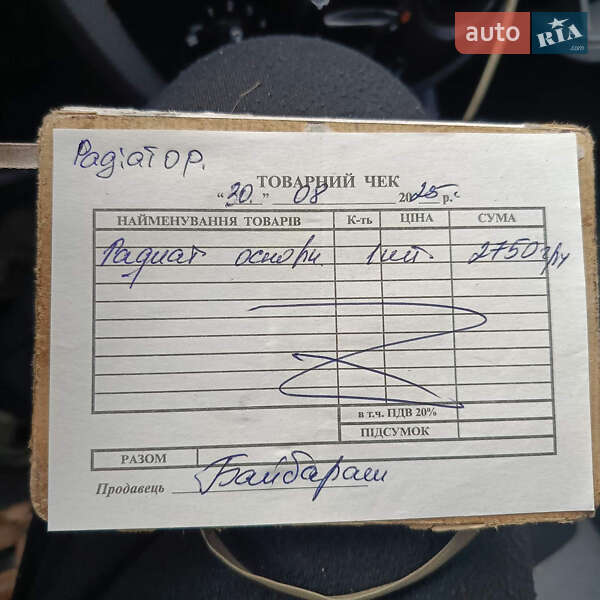 auto RIA .com
Радіатор.
ТОВАРНИЙ ЧЕК
“30.” 08 2025 р.
НАЙМЕНУВАННЯ ТОВАРІВ К-ть ЦІНА СУМА
Радиат основн. 1шт 2750грн
в т.ч. ПДВ 20%
ПІДСУМОК
РАЗОМ
Продавець Байбараш